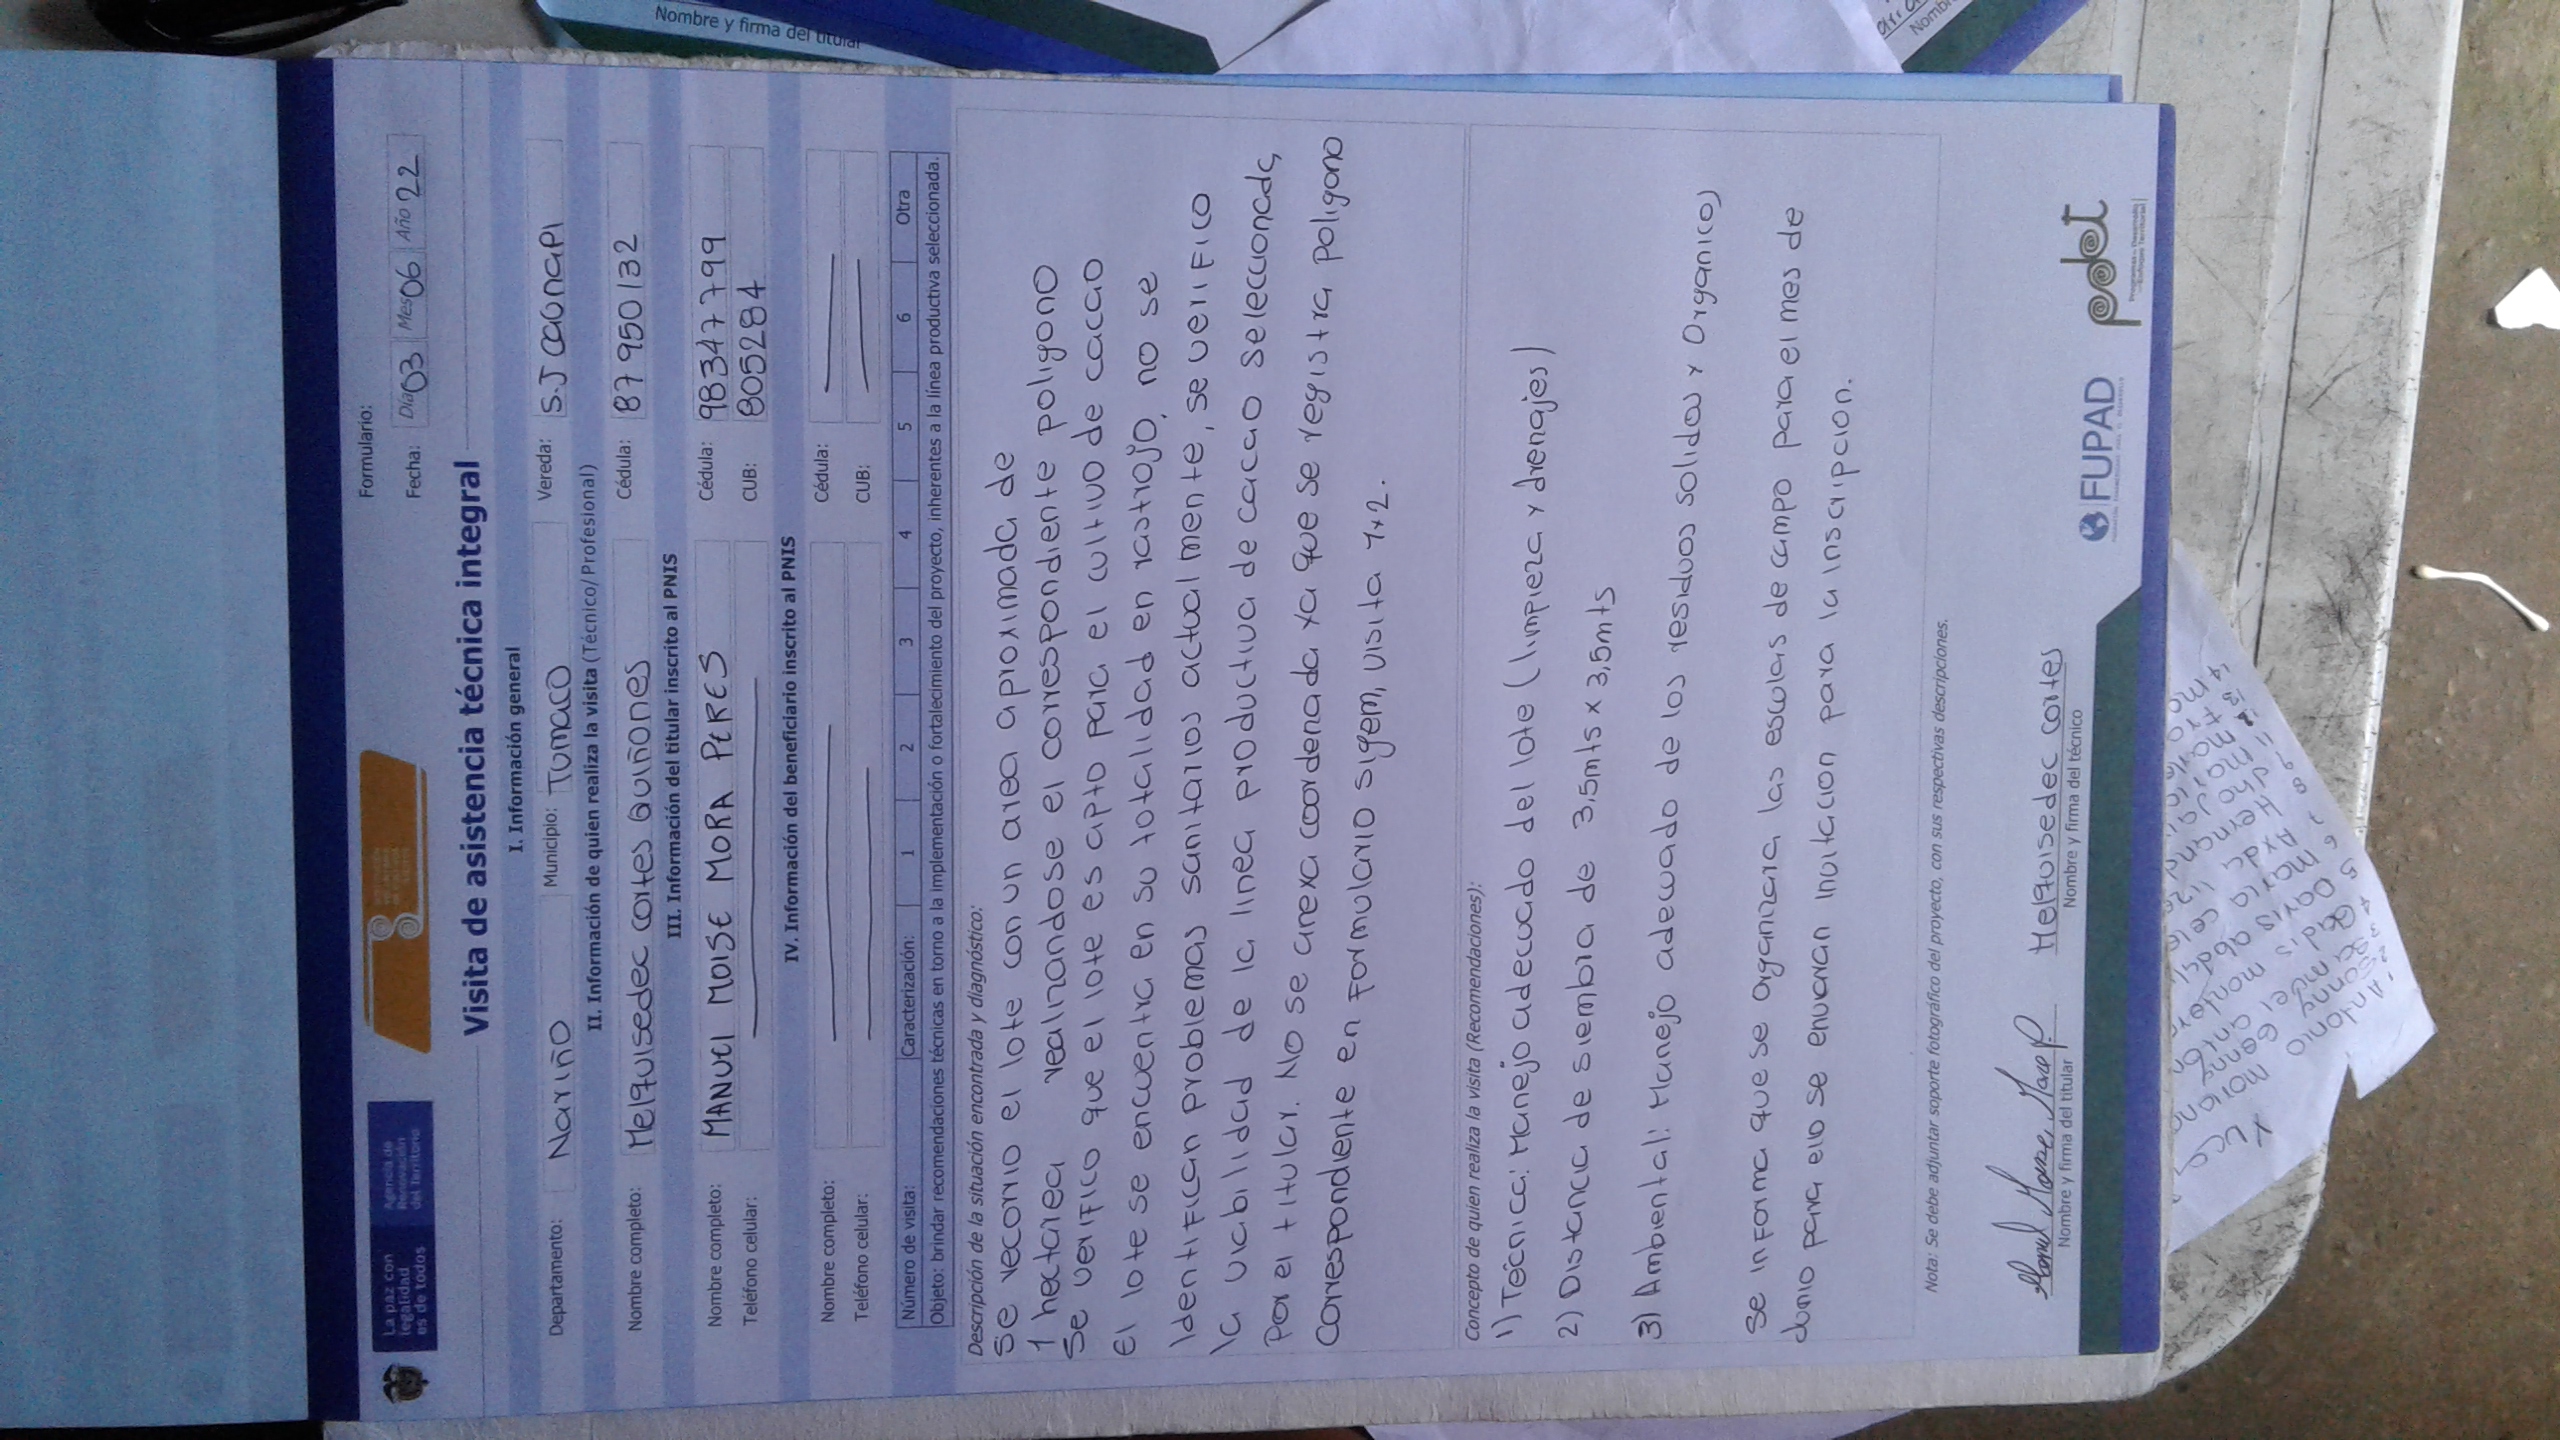 Nombre y firma del titular
La paz con
legalidad
es de todos
Agencia de
Renovación
del Territorio
Formulario:
Fecha: Día 03 Mes 06 Año 22
Visita de asistencia técnica integral
I. Información general
Departamento: Nariño Municipio: Tumaco Vereda: S.J caunapi
II. Información de quien realiza la visita (Técnico/Profesional)
Nombre completo: Melquisedec cortes Quiñones Cédula: 87950132
III. Información del titular inscrito al PNIS
Nombre completo: MANUEl MOISE MORA PERES Cédula: 98347799
Teléfono celular: CUB: 8052284
IV. Información del beneficiario inscrito al PNIS
Nombre completo: Cédula:
Teléfono celular: CUB:
Número de visita: Caracterización: 1 2 3 4 5 6 Otra
Objeto: brindar recomendaciones técnicas en torno a la implementación o fortalecimiento del proyecto, inherentes a la línea productiva seleccionada.
Descripción de la situación encontrada y diagnóstico:
Se recorrio el lote con un area aproximada de
1 hectarea realinandose el correspondiente poligono
Se verifico que el lote es apto para el cultivo de cacao
el lote se encuentra en su totalidad en rastrojo, no se
identifican problemas sanitarios actualmente, se verifico
la viabilidad de la linea productiva de cacao seleccionada
por el titular. No se anexa coordenada ya que se registra poligono
correspondiente en formulario sigem, visita 1+2.
Concepto de quien realiza la visita (Recomendaciones):
1) Tecnica: Manejo adecuado del lote (limpieza y drenajes)
2) Distancia de siembra de 3,5mts x 3,5mts
3) Ambiental: Manejo adecuado de los residuos solidos y Organicos
Se informa que se organizara las esculas de campo para el mes de
Junio para ello se enviaran invitacion para la inscripcion.
Nota: Se debe adjuntar soporte fotográfico del proyecto, con sus respectivas descripciones.
Manuel Moise Mora P. Melquisedec cortes
Nombre y firma del titular Nombre y firma del técnico
FUPAD
pdet